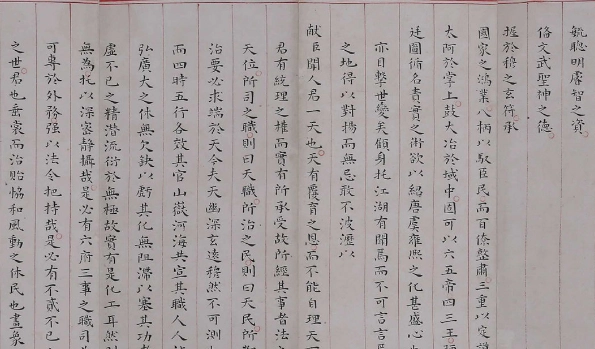 毓聰明睿智之資
脩文武聖神之德
握於穆之玄符承
國家之鴻業八柄以馭臣民而百條整肅三重以定
太阿於掌上鼓大冶於域中固可以六五帝四三王
廷圖術名責實之術欲以紹唐虞雍熙之化甚盛心
亦目擊世變矣顧身托江湖有聞焉而不可言言
之地得以對揚而無忌敢不披瀝以
獻臣聞人君一天也天有覆育之恩而不能自理天
君有統理之權而實有所承受故所經其事者法
天位所司之職則曰天職所治之民則曰天民所
治要必求端於天今夫天幽深玄遠穆然不可測
而四時五行各效其官山嶽河海共宣其職人人
弘廣大之休無欠缺以虧其化無阻滯以塞其功
虛不已之精潛流衍於無極故實有是化工耳然
無為托以深密靜攝哉是必有六府三事之職司
可專於外務強以法令把持哉是必有不貳不已
之世君也垂裳而治貽協和風動之休民也畫象